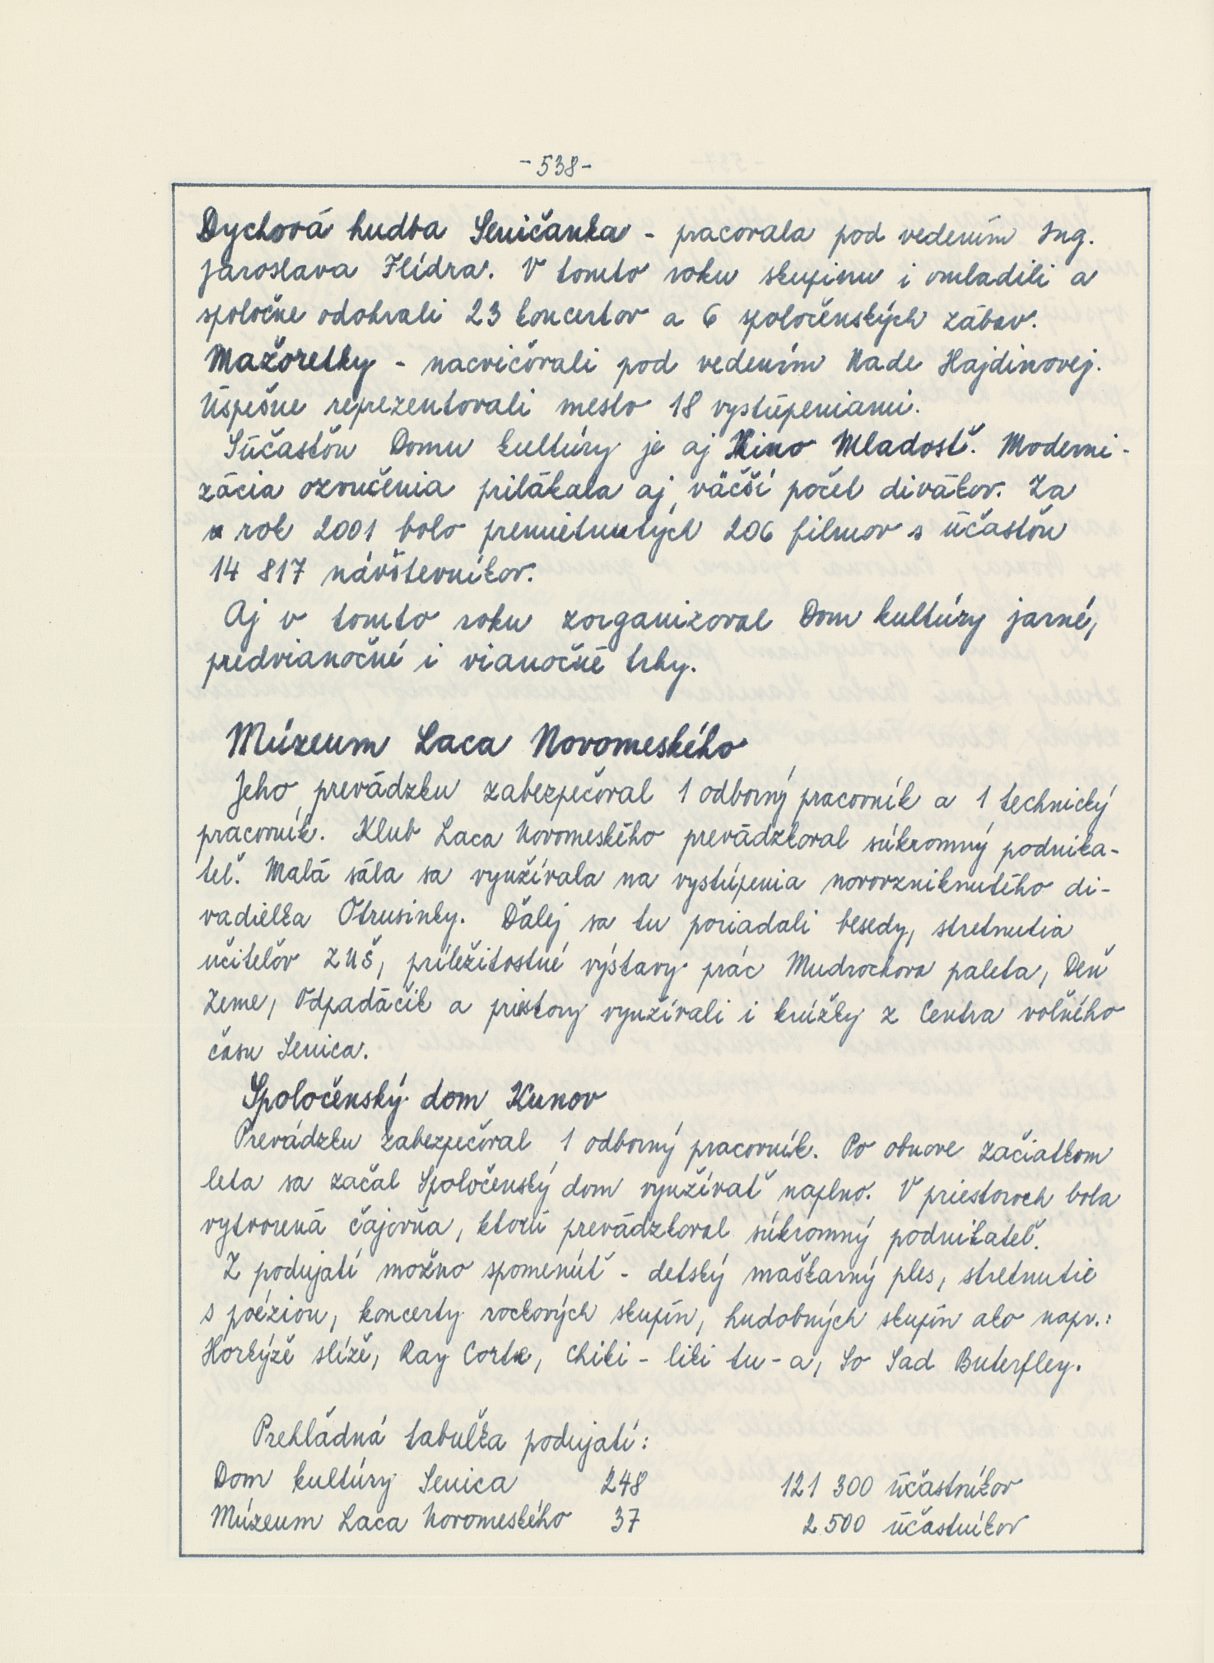 -538-
Dychová hudba Seničanka - pracovala pod vedením Ing.
Jaroslava Flídra. V tomto roku skupinu i omladili a
spoločne odohrali 23 koncertov a 6 spoločenských zábav.
Mažoretky - nacvičovali pod vedením Nade Hajdinovej.
Úspešne reprezentovali mesto 18 vystúpeniami.
Súčasťou Domu kultúry je aj Kino Mladosť. Moderni-
zácia ozvučenia prilákala aj väčší počet divákov. Za
rok 2001 bolo premietnutých 206 filmov s účasťou
14 817 návštevníkov.
Aj v tomto roku zorganizoval Dom kultúry jarné,
predvianočné i vianočné trhy.
Múzeum Laca Novomeského
Jeho prevádzku zabezpečoval 1 odborný pracovník a 1 technický
pracovník. Klub Laca Novomeského prevádzkoval súkromný podnika-
teľ. Malá sála sa využívala na vystúpenia novovzniknutého di-
vadielka Otrusinky. Ďalej sa tu poriadali besedy, stretnutia
učiteľov ZUŠ, príležitostné výstavy prác Mudrochova paleta, Deň
Zeme, Odpadáčik a priestory využívali i krúžky z Centra voľného
času Senica.
Spoločenský dom Kunov
Prevádzku zabezpečoval 1 odborný pracovník. Po obnove začiatkom
leta sa začal Spoločenský dom využívať naplno. V priestoroch bola
vytvorená čajovňa, ktorú prevádzkoval súkromný podnikateľ.
Z podujatí možno spomenúť - detský maškarný ples, stretnutie
s poéziou, koncerty rockových skupín, hudobných skupín ako napr.:
Horkýže slíže, Ray Corte, Chiki - liki tu - a, So Sad Buterfley.
Prehľadná tabuľka podujatí:
Dom kultúry Senica 248 121 300 účastníkov
Múzeum Laca Novomeského 37 2 500 účastníkov